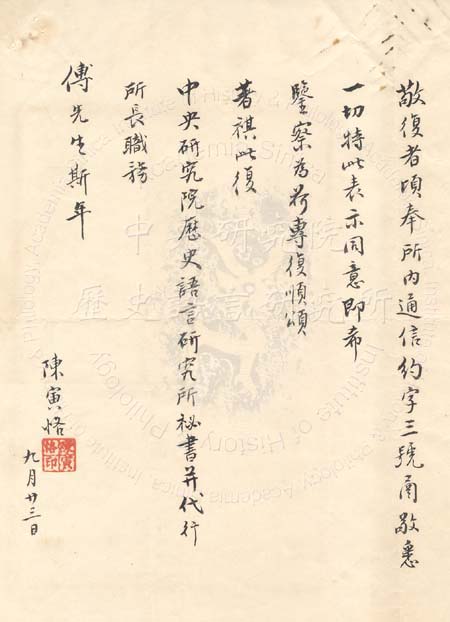 敬復者頃奉所內通信約字三號函敬悉
一切特此表示同意即希
鑒察為荷專復順頌
著祺此復
中央研究院歷史語言研究所秘書并代行
所長職務
傅先生斯年
陳寅恪
陳寅恪印
九月廿三日
中央研究院
歷史語言研究所
Institute of History & Philology Academia Sinica